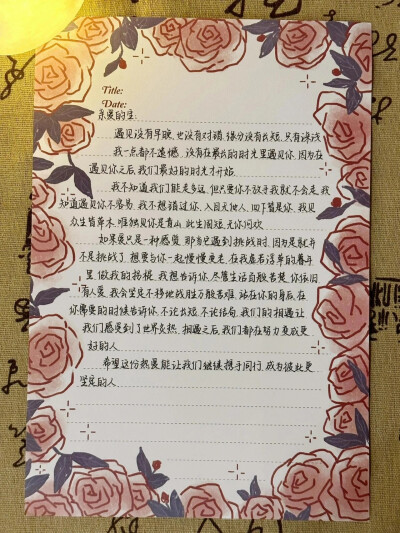 Title:
Date:
亲爱的宝:
遇见没有早晚,也没有对错,缘分没有长短,只有深浅
我一点都不遗憾,没有在最好的时光里遇见你,因为在
遇见你之后,我们最好的时光才开始.
我不知道我们能走多远,但只要你不放手我就不会走,我
知道遇见你不容易,我不想错过你,入目无他人,四下皆是你,我见
众生皆草木,唯独见你是青山,此生阅短无你何欢
如果爱只是一种感觉,那为何遇到挑战时,因为是就并
不是挑战了,想要与你一起慢慢变老,在我最若浮萍的暮年
里,做我的拐杖,我想告诉你,尽管生活自救苦楚,你依旧
有人爱,我会坚定不移地战胜万般苦难,站在你的身后,在
你需要的时候告诉你,不论长短,不论结局,我们的相遇让
我们感受到了世界炙热,相遇之后,我们都在努力变成更
好的人
希望这份热爱能让我们继续携手同行,成为彼此更
坚定的人